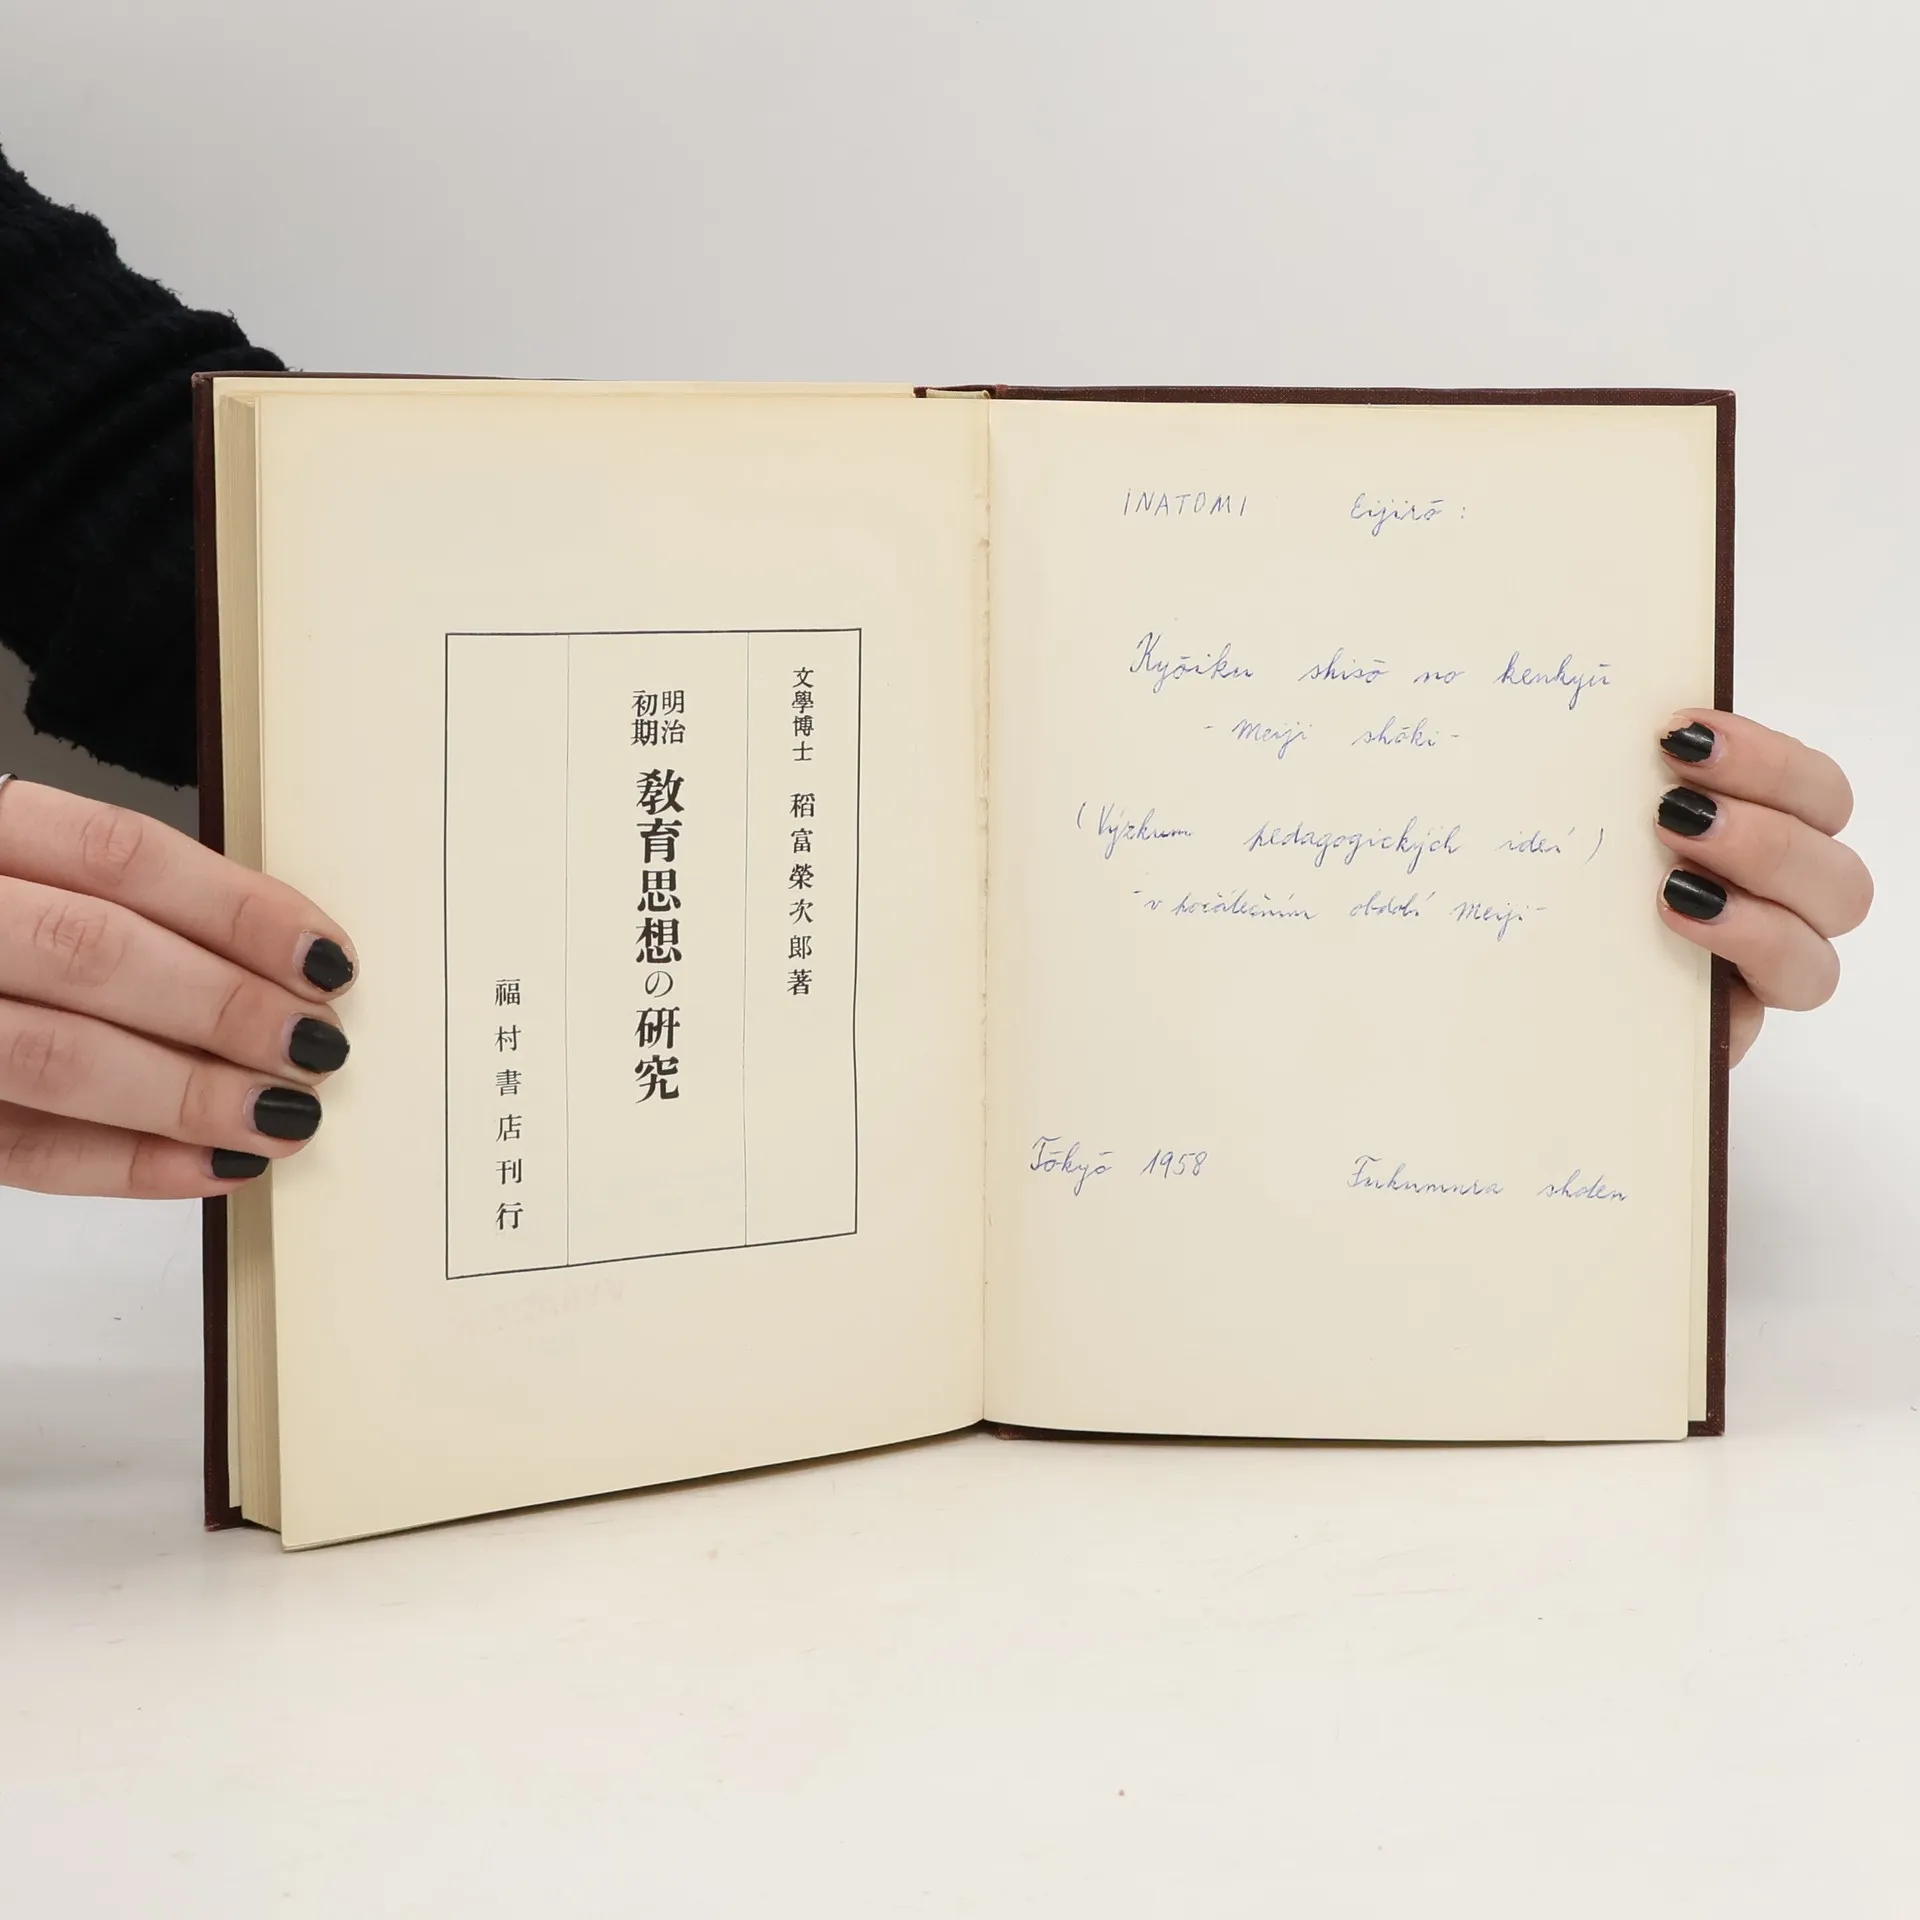 文學博士 稻富榮次郎著
明治
初期
敎育思想の研究
福村書店刊行
INATOMI Eijirō:
Kyōiku shisō no kenkyū
- Meiji shōki -
(Výzkum pedagogických ideí)
- v počátečním období Meiji -
Tōkyō 1958 Fukumura shoten